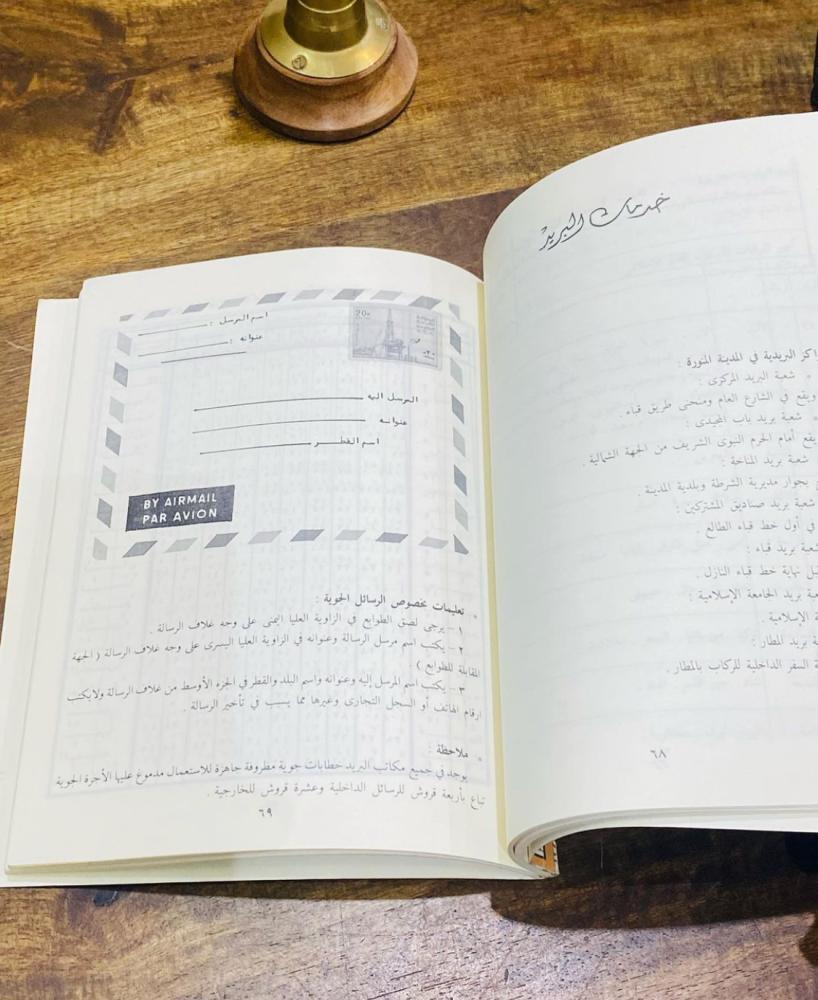 خدمات البريد
راكز البريدية في المدينة المنورة :
* شعبة البريد المركزى :
ويقع في الشارع العام ومنحنى طريق قباء .
* شعبة بريد باب المجيدى :
يقع أمام الحرم النبوى الشريف من الجهة الشمالية .
شعبة بريد المناخة :
بجوار مديرية الشرطة وبلدية المدينة .
شعبة بريد صناديق المشتركين :
في أول خط قباء الطالع .
بريد قباء :
نهاية خط قباء النازل .
بريد الجامعة الإسلامية :
الإسلامية .
بريد المطار :
السفر الداخلية للركاب بالمطار .
٦٨
اسم المرسل :
عنوانه :
20
٢٠
المرسل اليه
عنوانه
اسم القطر
BY AIRMAIL
PAR AVION
* تعليمات بخصوص الرسائل الجوية :
١ – يرجى لصق الطوابع في الزاوية العليا اليمنى على وجه غلاف الرسالة .
٢ – يكتب اسم مرسل الرسالة وعنوانه في الزاوية العليا اليسرى على وجه غلاف الرسالة ( الجهة
المقابلة للطوابع ) .
٣ – يكتب اسم المرسل إليه وعنوانه واسم البلد والقطر في الجزء الأوسط من غلاف الرسالة ولايكتب
ارقام الهاتف أو السجل التجارى وغيرها مما يسبب في تأخير الرسالة .
* ملاحظة :
يوجد في جميع مكاتب البريد خطابات جوية مظروفة جاهزة للاستعمال مدموغ عليها الأجرة الجوية
تباع بأربعة قروش للرسائل الداخلية وعشرة قروش للخارجية .
٦٩